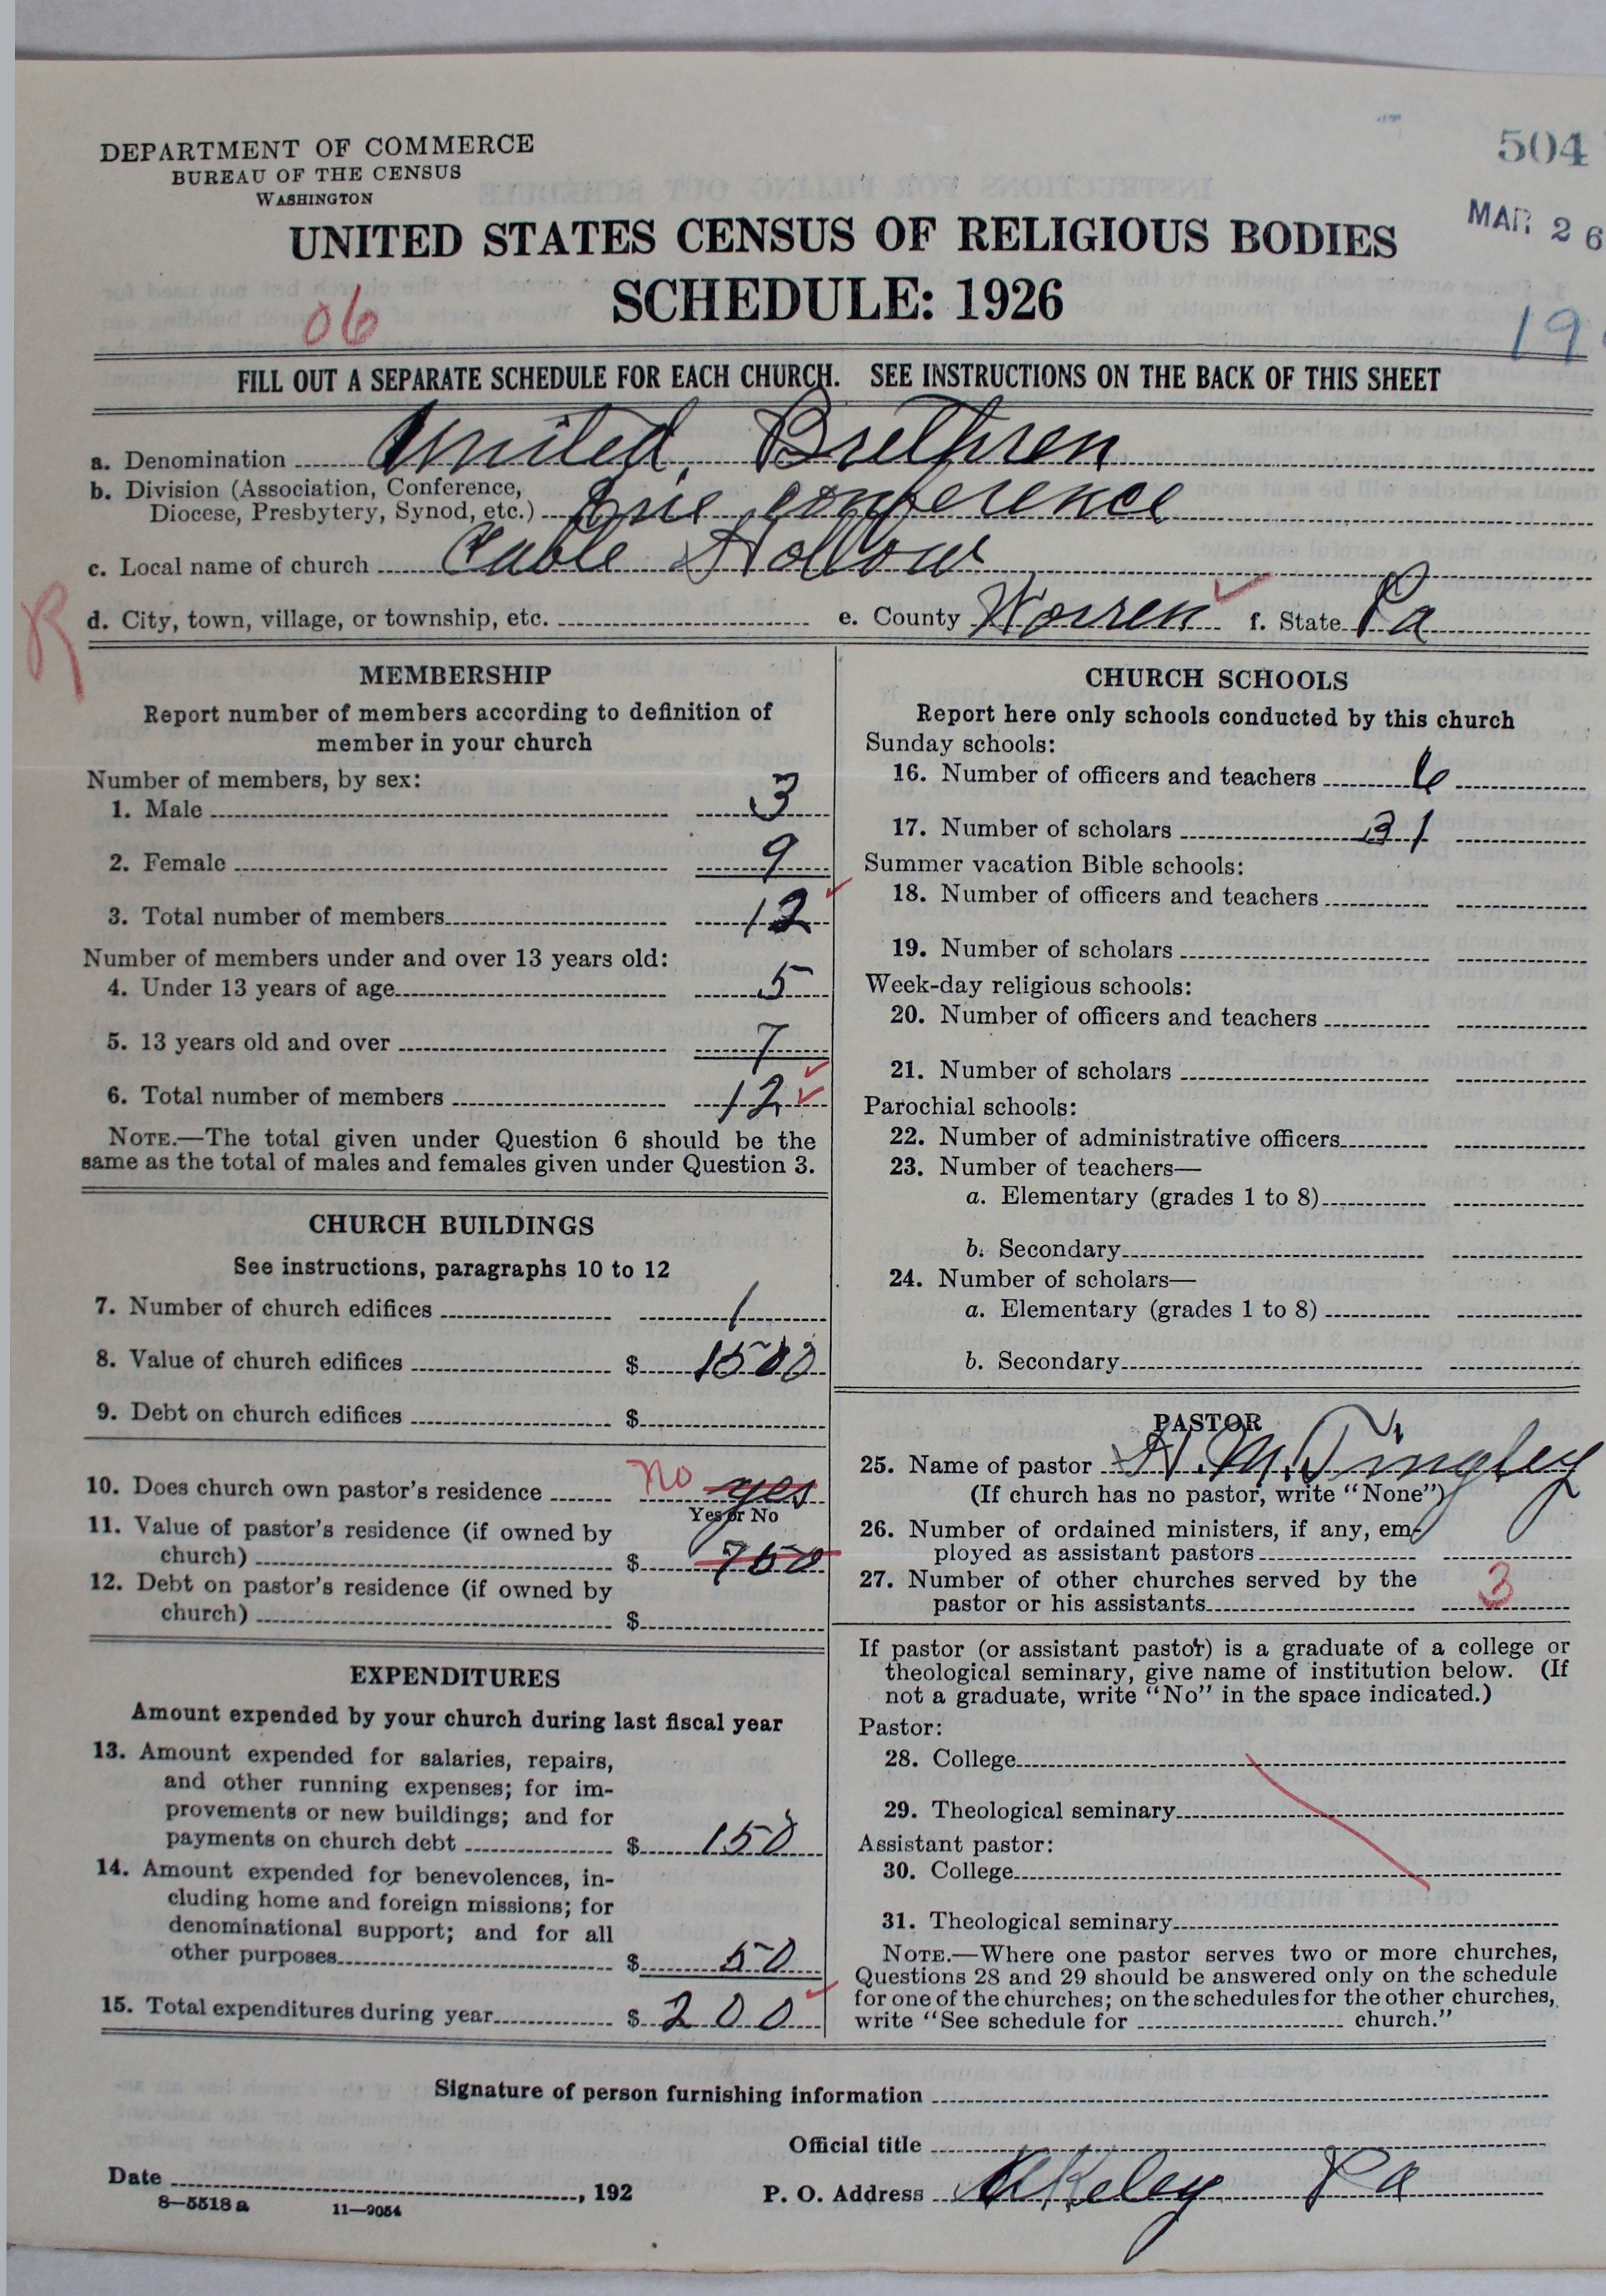 504
DEPARTMENT OF COMMERCE
BUREAU OF THE CENSUS
WASHINGTON
MAR 26
UNITED STATES CENSUS OF RELIGIOUS BODIES
SCHEDULE: 1926
06
19
FILL OUT A SEPARATE SCHEDULE FOR EACH CHURCH. SEE INSTRUCTIONS ON THE BACK OF THIS SHEET
a. Denomination United Brethren
b. Division (Association, Conference,
Diocese, Presbytery, Synod, etc.) Erie conference
c. Local name of church Cable Hollow
R
d. City, town, village, or township, etc. e. County Warren f. State Pa
MEMBERSHIP
Report number of members according to definition of
member in your church
Number of members, by sex:
1. Male 3
2. Female 9
3. Total number of members 12
Number of members under and over 13 years old:
4. Under 13 years of age 5
5. 13 years old and over 7
6. Total number of members 12
NOTE.—The total given under Question 6 should be the
same as the total of males and females given under Question 3.
CHURCH BUILDINGS
See instructions, paragraphs 10 to 12
7. Number of church edifices 1
8. Value of church edifices $ 1500
9. Debt on church edifices $
10. Does church own pastor's residence no yes
Yes or No
11. Value of pastor's residence (if owned by
church) $ 750
12. Debt on pastor's residence (if owned by
church) $
EXPENDITURES
Amount expended by your church during last fiscal year
13. Amount expended for salaries, repairs,
and other running expenses; for im-
provements or new buildings; and for
payments on church debt $ 150
14. Amount expended for benevolences, in-
cluding home and foreign missions; for
denominational support; and for all
other purposes $ 50
15. Total expenditures during year $ 200
CHURCH SCHOOLS
Report here only schools conducted by this church
Sunday schools:
16. Number of officers and teachers 6
17. Number of scholars 31
Summer vacation Bible schools:
18. Number of officers and teachers
19. Number of scholars
Week-day religious schools:
20. Number of officers and teachers
21. Number of scholars
Parochial schools:
22. Number of administrative officers
23. Number of teachers—
a. Elementary (grades 1 to 8)
b. Secondary
24. Number of scholars—
a. Elementary (grades 1 to 8)
b. Secondary
PASTOR
25. Name of pastor H. M. Tingley
(If church has no pastor, write "None")
26. Number of ordained ministers, if any, em-
ployed as assistant pastors
27. Number of other churches served by the
pastor or his assistants 3
If pastor (or assistant pastor) is a graduate of a college or
theological seminary, give name of institution below. (If
not a graduate, write "No" in the space indicated.)
Pastor:
28. College
29. Theological seminary
Assistant pastor:
30. College
31. Theological seminary
NOTE.—Where one pastor serves two or more churches,
Questions 28 and 29 should be answered only on the schedule
for one of the churches; on the schedules for the other churches,
write "See schedule for church."
Signature of person furnishing information
Official title
Date , 192
P. O. Address Akeley Pa
8—5518 a 11—9054